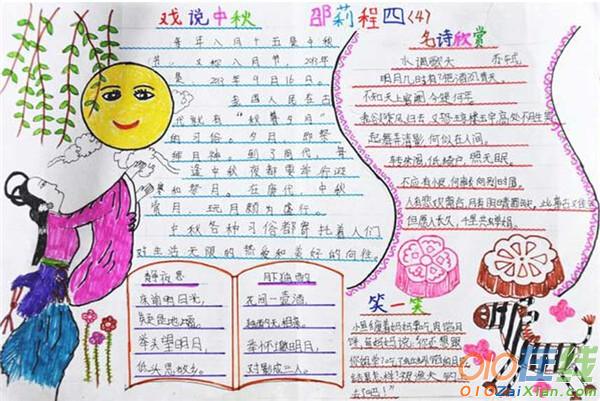 戏说中秋 邵莉程四〈4〉
每年八月十五是中秋
节，又称八月节，2013年
是，2013年9月16日。
我国人民在古
代就有“秋暮夕月”
的习俗。夕月，即祭
拜月神。到了周代，每
逢中秋夜都要举行迎
寒和祭月。在唐代，中秋
赏月、玩月颇为盛行。
中秋各种习俗都寄托着人们
对生活无限的热爱和美好的向往。
名诗欣赏
水调歌头 苏轼
明月几时有?把酒问青天。
不知天上宫阙,今夕是何年
我欲乘风归去,又恐琼楼玉宇,高处不胜寒
起舞弄清影,何似在人间
转朱阁,低绮户,照无眠。
不应有恨,何事长向别时圆。
人有悲欢离合,月有阴晴圆缺,此事古难全
但愿人长久,千里共婵娟。
静夜思
床前明月光,
疑是地上霜。
举头望明月,
低头思故乡。
月下独酌
花间一壶酒,
独酌无相亲。
举杯邀明月,
对影成三人。
笑一笑
去吗!”
010在线
010ZaiXian.com